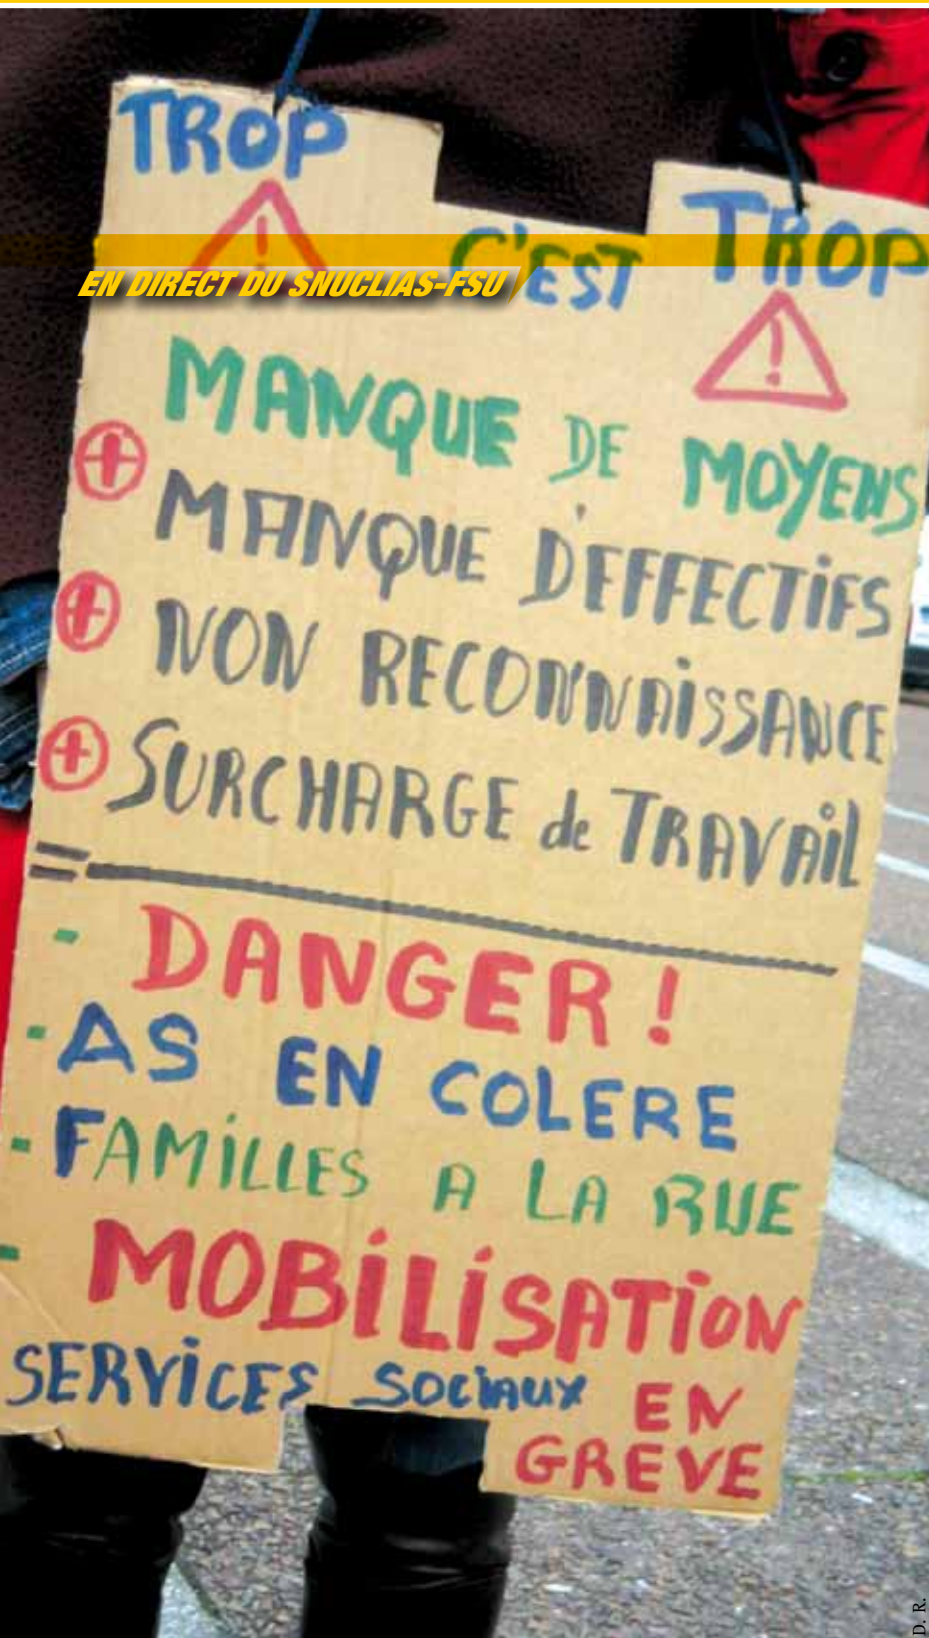 TROP
C'EST TROP
EN DIRECT DU SNUCLIAS-FSU
MANQUE DE MOYENS
+ MANQUE D'EFFECTiFS
+ NON RECONNAiSSANCE
+ SURCHARGE de TRAVAiL
=
- DANGER !
- AS EN COLERE
- FAMiLLES A LA RUE
- MOBiLiSATiON
SERViCES SOCiAUX EN
GREVE
D. R.